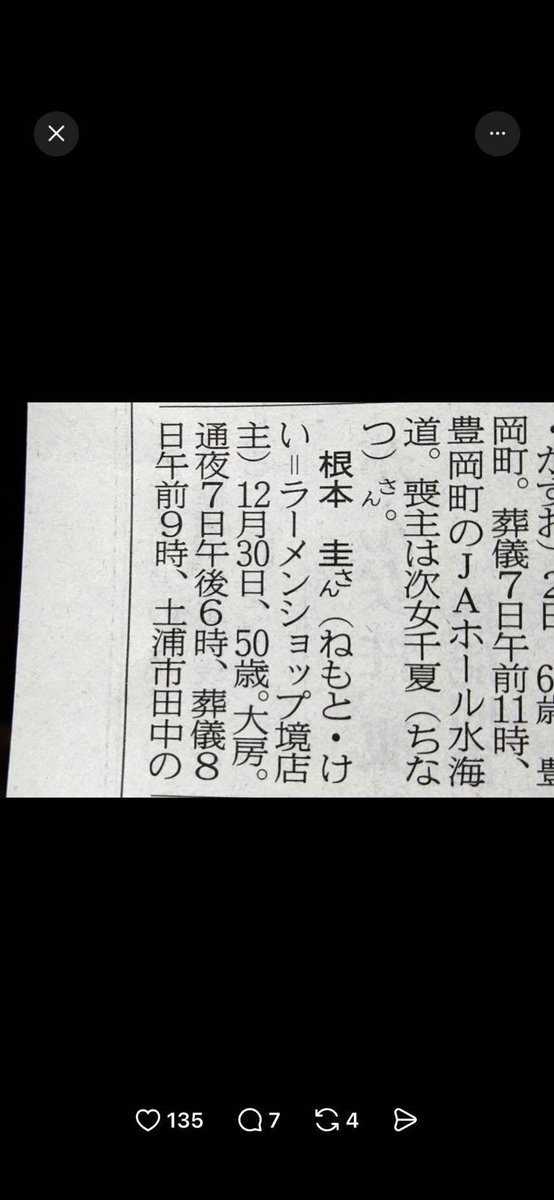 岡町。葬儀7日午前11時、
豊岡町のJAホール水海
道。喪主は次女千夏（ちな
つ）さん。
根本　圭さん（ねもと・け
い＝ラーメンショップ境店
主）12月30日、50歳。大房。
通夜7日午後6時、葬儀8
日午前9時、土浦市田中の
135
7
4